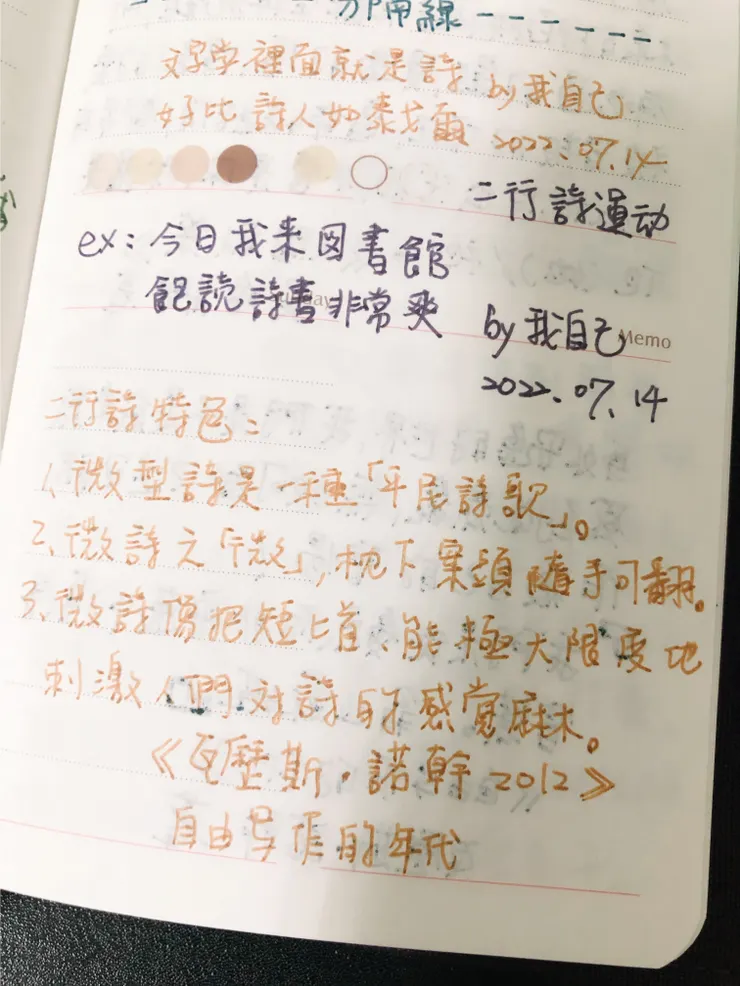 ------分隔線------
文字学裡面就是詩 by 我自己
好比詩人如泰戈爾 2022.07.14
二行詩運动
ex：今日我来図書館
飽読詩書非常爽 by 我自己
Memo
2022.07.14
二行詩特色：
1、微型詩是一種「平民詩歌」。
2、微詩之「微」,枕下案頭隨手可翻。
3、微詩像把短匕首、能極大限度地
刺激人們対詩的感覚麻木。
《瓦歷斯·諾幹 2012》
自由写作的年代